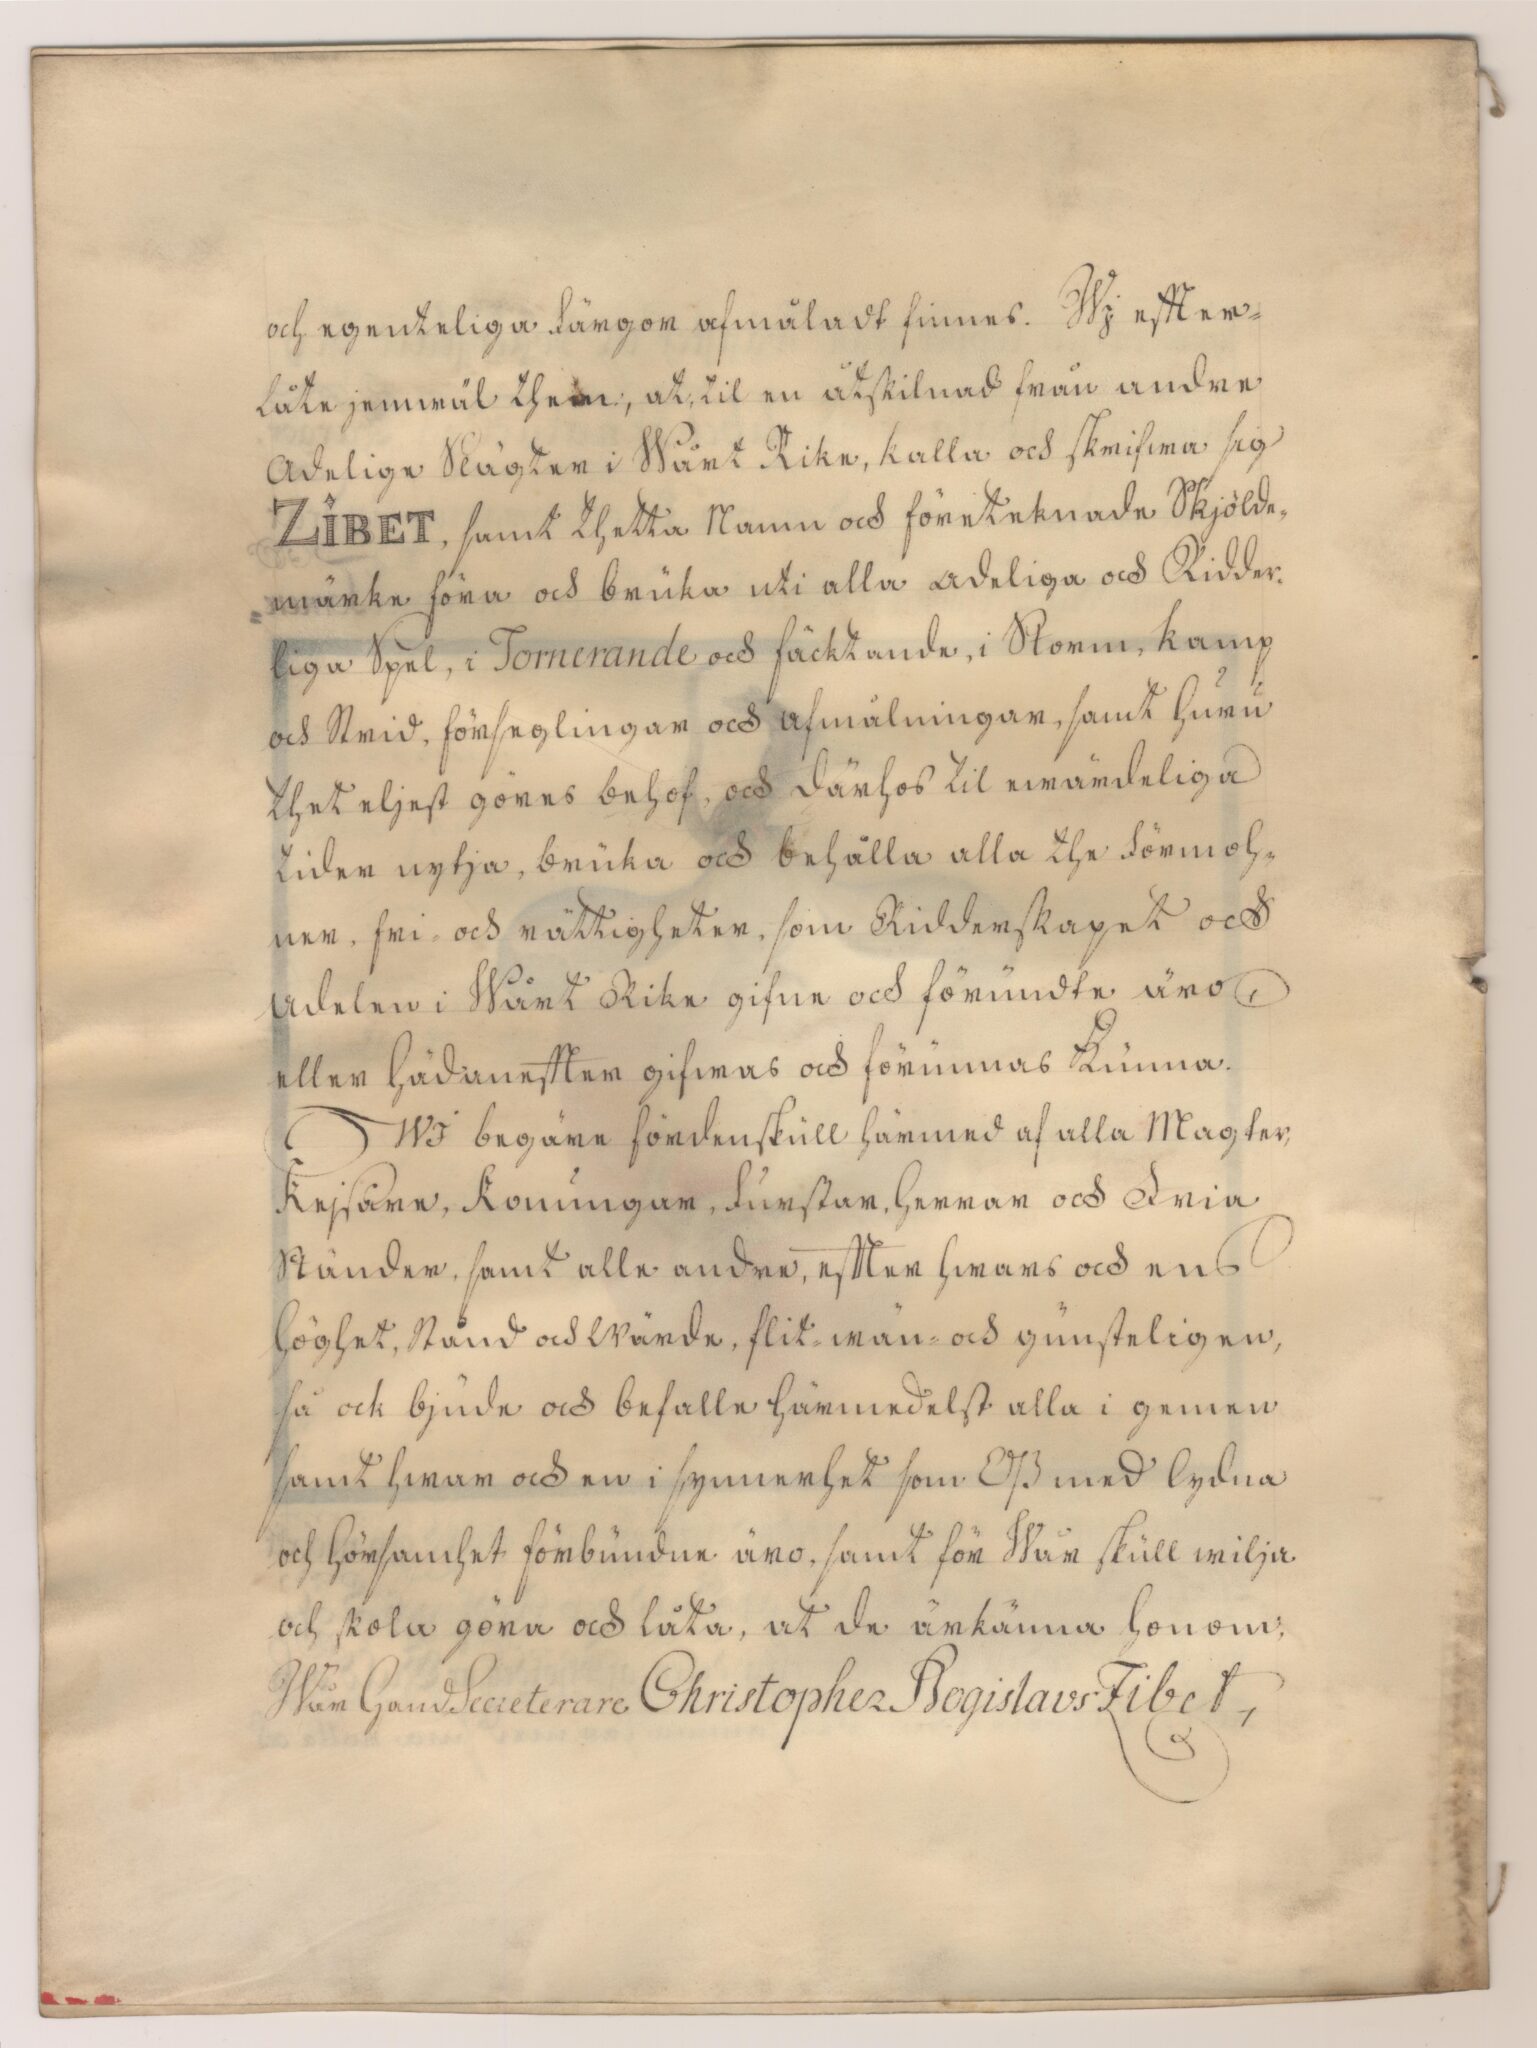 och egenteliga färgor afmåladt finnes. Wj effter-
låte jemwäl them, at, til en åtskilnad från andre
Adelige Slägter i Wårt Rike, kalla och skrifwa sig
ZIBET, samt thetta Namn och företeknade Skjölde-
märke föra och brüka uti alla adeliga och Ridder-
liga Spel, i Tornerande och fäcktande, i Storm, kamp
och Strid, förseglingar och afmålningar, samt huru
thet eljest göres behof, och därhos til ewärdeliga
tider nytja, brüka och behålla alla the förmoh-
ner, fri- och rättigheter, som Ridderskapet och
Adelen i Wårt Rike gifne och förundte äro,
eller hädaneffter gifwas och förunnas kunna.
WJ begäre fördenskull härmed af alla Magter,
Kejsare, Konungar, Furstar, Herrar och Fria
Ständer, samt alle andre, effter hwars och ens
höghet, Stånd och Wärde, flit- wän- och gunsteligen,
så ock bjude och befalle härmedelst alla i gemen
samt hwar och en i synnerhet som Oß med lydna
och hörsamhet förbundne äro, samt för Wår skull wilja
och skola göra och låta, at de ärkänna honom,
Wår Hand Secreterare Christopher Bogislavs Zibet,